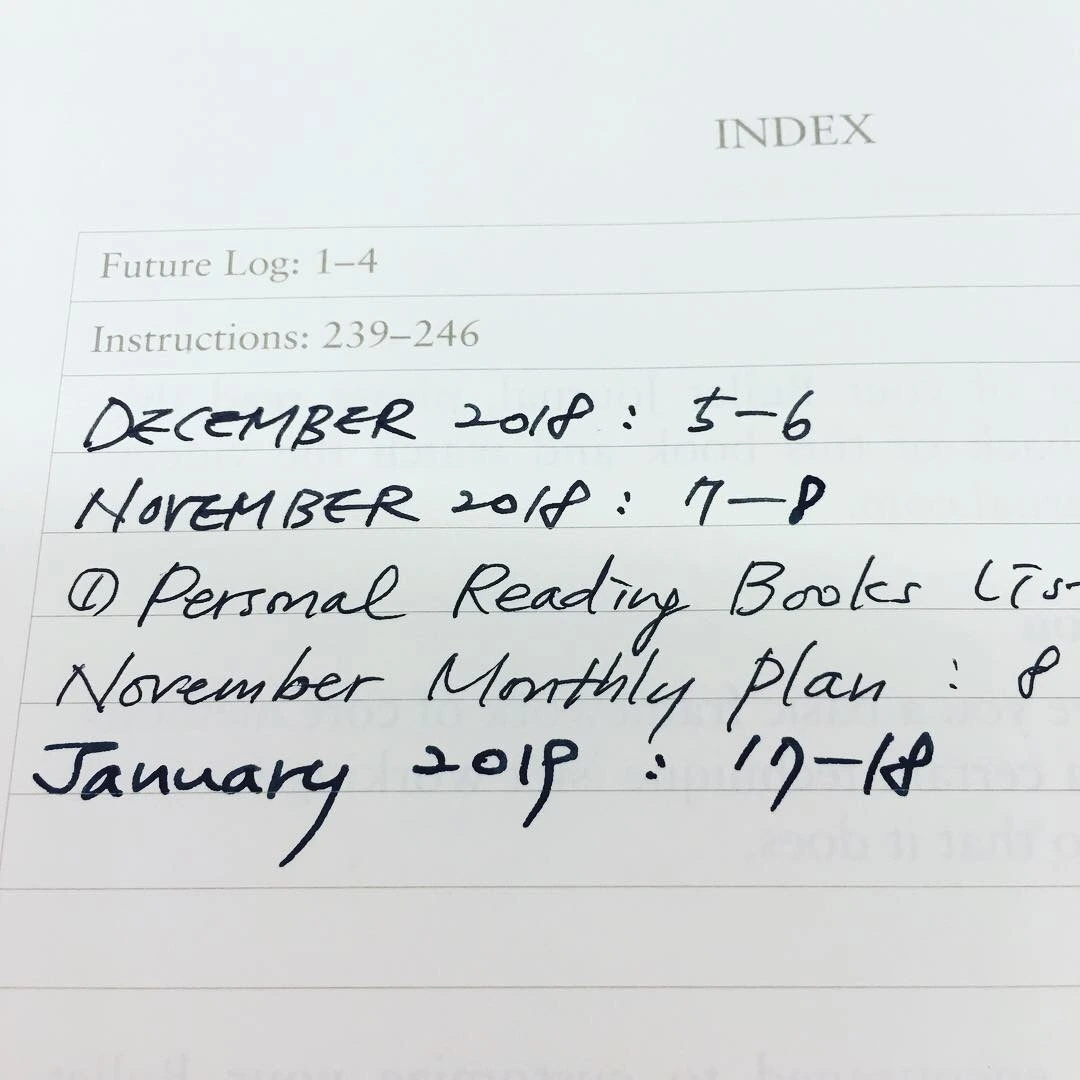 INDEX
Future Log: 1–4
Instructions: 239–246
DECEMBER 2018 : 5-6
NOVEMBER 2018 : 7-8
① Personal Reading Books
November Monthly plan : 8
January 2019 : 17-18